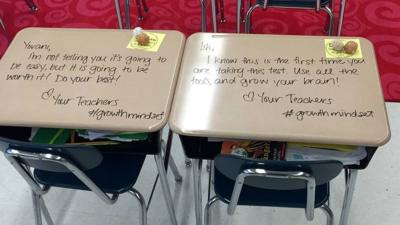 Yovani,
I'm not telling you it's going to
be easy, but it is going to be
worth it! Do your best!
♡ Your Teachers
#growthmindset
I know this is the first time you
are taking this test. Use all the
tools and grow your brain!
♡ Your Teachers
#growthmindset